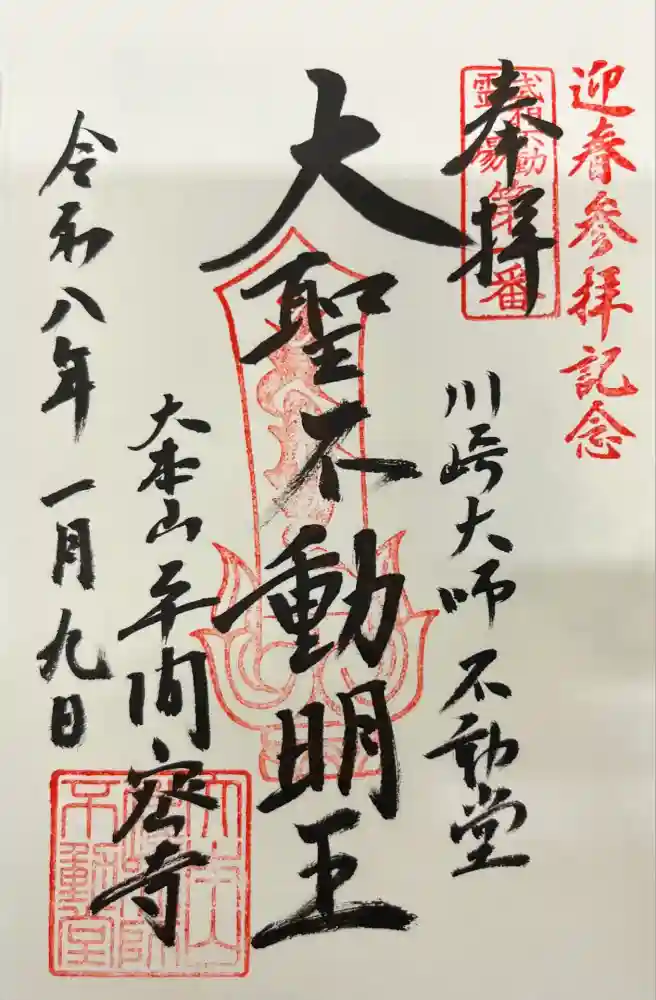 迎春参拝記念
奉拝
武相不動
霊場第一番
川崎大師不動堂
大聖不動明王
大本山平間密寺
令和八年一月九日
大本山
川崎大師
不動堂